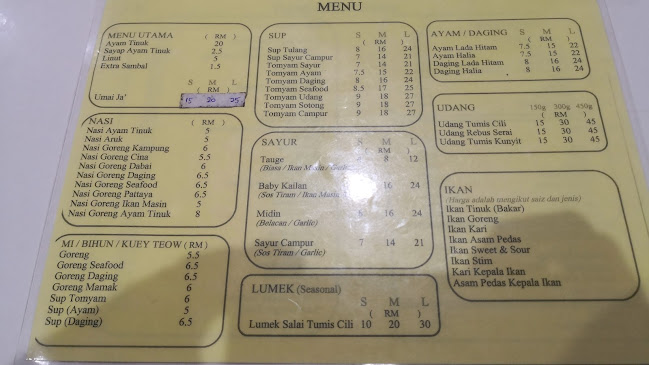 MENU
MENU UTAMA ( RM )
Ayam Tinuk 20
Sayap Ayam Tinuk 2.5
Linut 5
Extra Sambal 1.5
S M L
( RM )
Umai Ja' 15 20 25
NASI ( RM )
Nasi Ayam Tinuk 5
Nasi Aruk 5
Nasi Goreng Kampung 6
Nasi Goreng Cina 5.5
Nasi Goreng Dabai 6
Nasi Goreng Daging 6.5
Nasi Goreng Seafood 6.5
Nasi Goreng Pattaya 6.5
Nasi Goreng Ikan Masin 5
Nasi Goreng Ayam Tinuk 8
MI / BIHUN / KUEY TEOW ( RM )
Goreng 5.5
Goreng Seafood 6.5
Goreng Daging 6.5
Goreng Mamak 6
Sup Tomyam 6
Sup (Ayam) 5
Sup (Daging) 6.5
SUP S M L
( RM )
Sup Tulang 8 16 24
Sup Sayur Campur 7 14 21
Tomyam Sayur 7 14 21
Tomyam Ayam 7.5 15 22
Tomyam Daging 8 16 24
Tomyam Seafood 8.5 17 25
Tomyam Udang 9 18 27
Tomyam Sotong 9 18 27
Tomyam Campur 9 18 27
SAYUR S M L
( RM )
Tauge 8 12
(Biasa / Ikan Masin / Garlic)
Baby Kailan 16 24
(Sos Tiram / Ikan Masin)
Midin 16 24
(Belacan / Garlic)
Sayur Campur 7 14 21
(Sos Tiram / Garlic)
LUMEK (Seasonal)
S M L
( RM )
Lumek Salai Tumis Cili 10 20 30
AYAM / DAGING S M L
( RM )
Ayam Lada Hitam 7.5 15 22
Ayam Halia 7.5 15 22
Daging Lada Hitam 8 16 24
Daging Halia 8 16 24
UDANG 150g 300g 450g
( RM )
Udang Tumis Cili 15 30 45
Udang Rebus Serai 15 30 45
Udang Tumis Kunyit 15 30 45
IKAN
(Harga adalah mengikut saiz dan jenis)
Ikan Tinuk (Bakar)
Ikan Goreng
Ikan Kari
Ikan Asam Pedas
Ikan Sweet & Sour
Ikan Stim
Kari Kepala Ikan
Asam Pedas Kepala Ikan